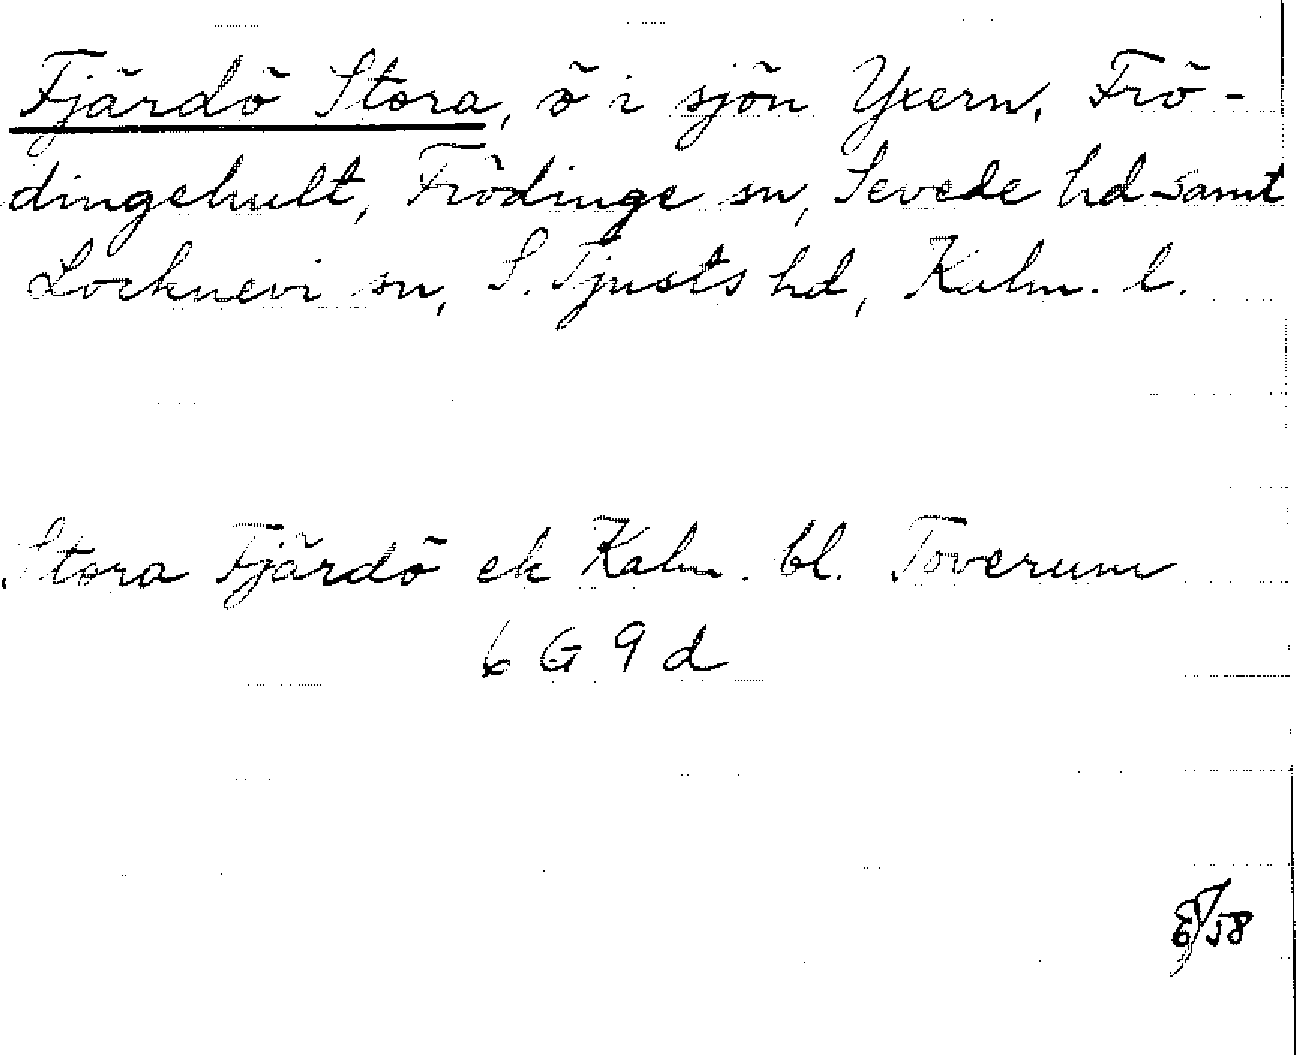 Fjärdö Stora, ö i sjön Yxern, Frö-
dingehult, Frödinge sn, Sevede hd samt
Locknevi sn, S. Tjusts hd, Kalm. l.
Stora Fjärdö ek Kalm. bl. Toverum
6 G 9 d